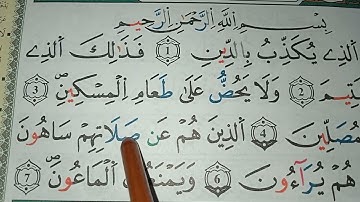 بِسْمِ اللَّهِ الرَّحْمَٰنِ الرَّحِيمِ
الَّذِي يُكَذِّبُ بِالدِّينِ ۝١ فَذَٰلِكَ الَّذِي
ـتِيمَ ۝٢ وَلَا يَحُضُّ عَلَىٰ طَعَامِ الْمِسْكِينِ ۝٣
مُصَلِّينَ ۝٤ الَّذِينَ هُمْ عَن صَلَاتِهِمْ سَاهُونَ
هُمْ يُرَآءُونَ ۝٦ وَيَمْنَعُونَ الْمَاعُونَ ۝٧